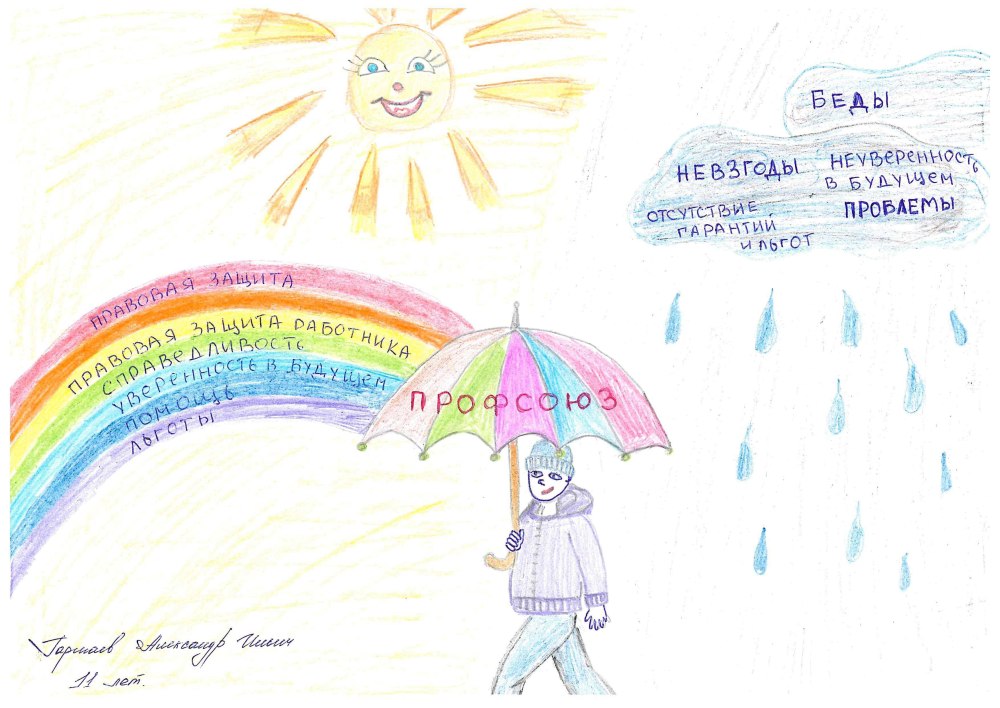 БЕДЫ
НЕВЗГОДЫ
НЕУВЕРЕННОСТЬ
В БУДУЩЕМ
ОТСУТСТВИЕ
ГАРАНТИЙ
И ЛЬГОТ
ПРОБЛЕМЫ
ПРАВОВАЯ ЗАЩИТА
ПРАВОВАЯ ЗАЩИТА РАБОТНИКА
СПРАВЕДЛИВОСТЬ
УВЕРЕННОСТЬ В БУДУЩЕМ
ПОМОЩЬ
ЛЬГОТЫ
ПРОФСОЮЗ
Александр
11 лет.